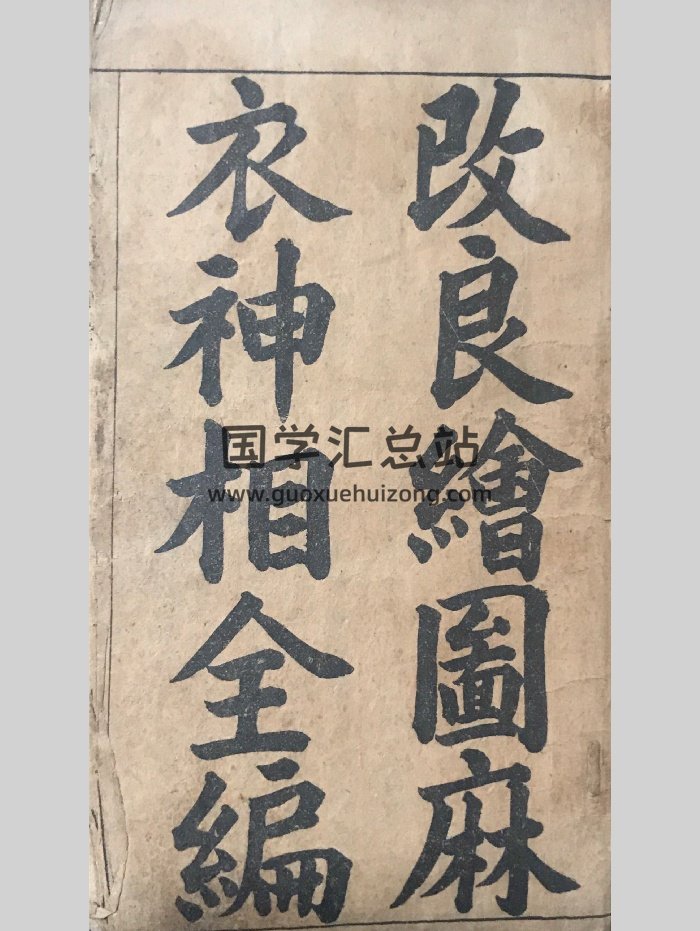 改良繪圖麻
衣神相全編
国学汇总站
www.guoxuehuizong.com